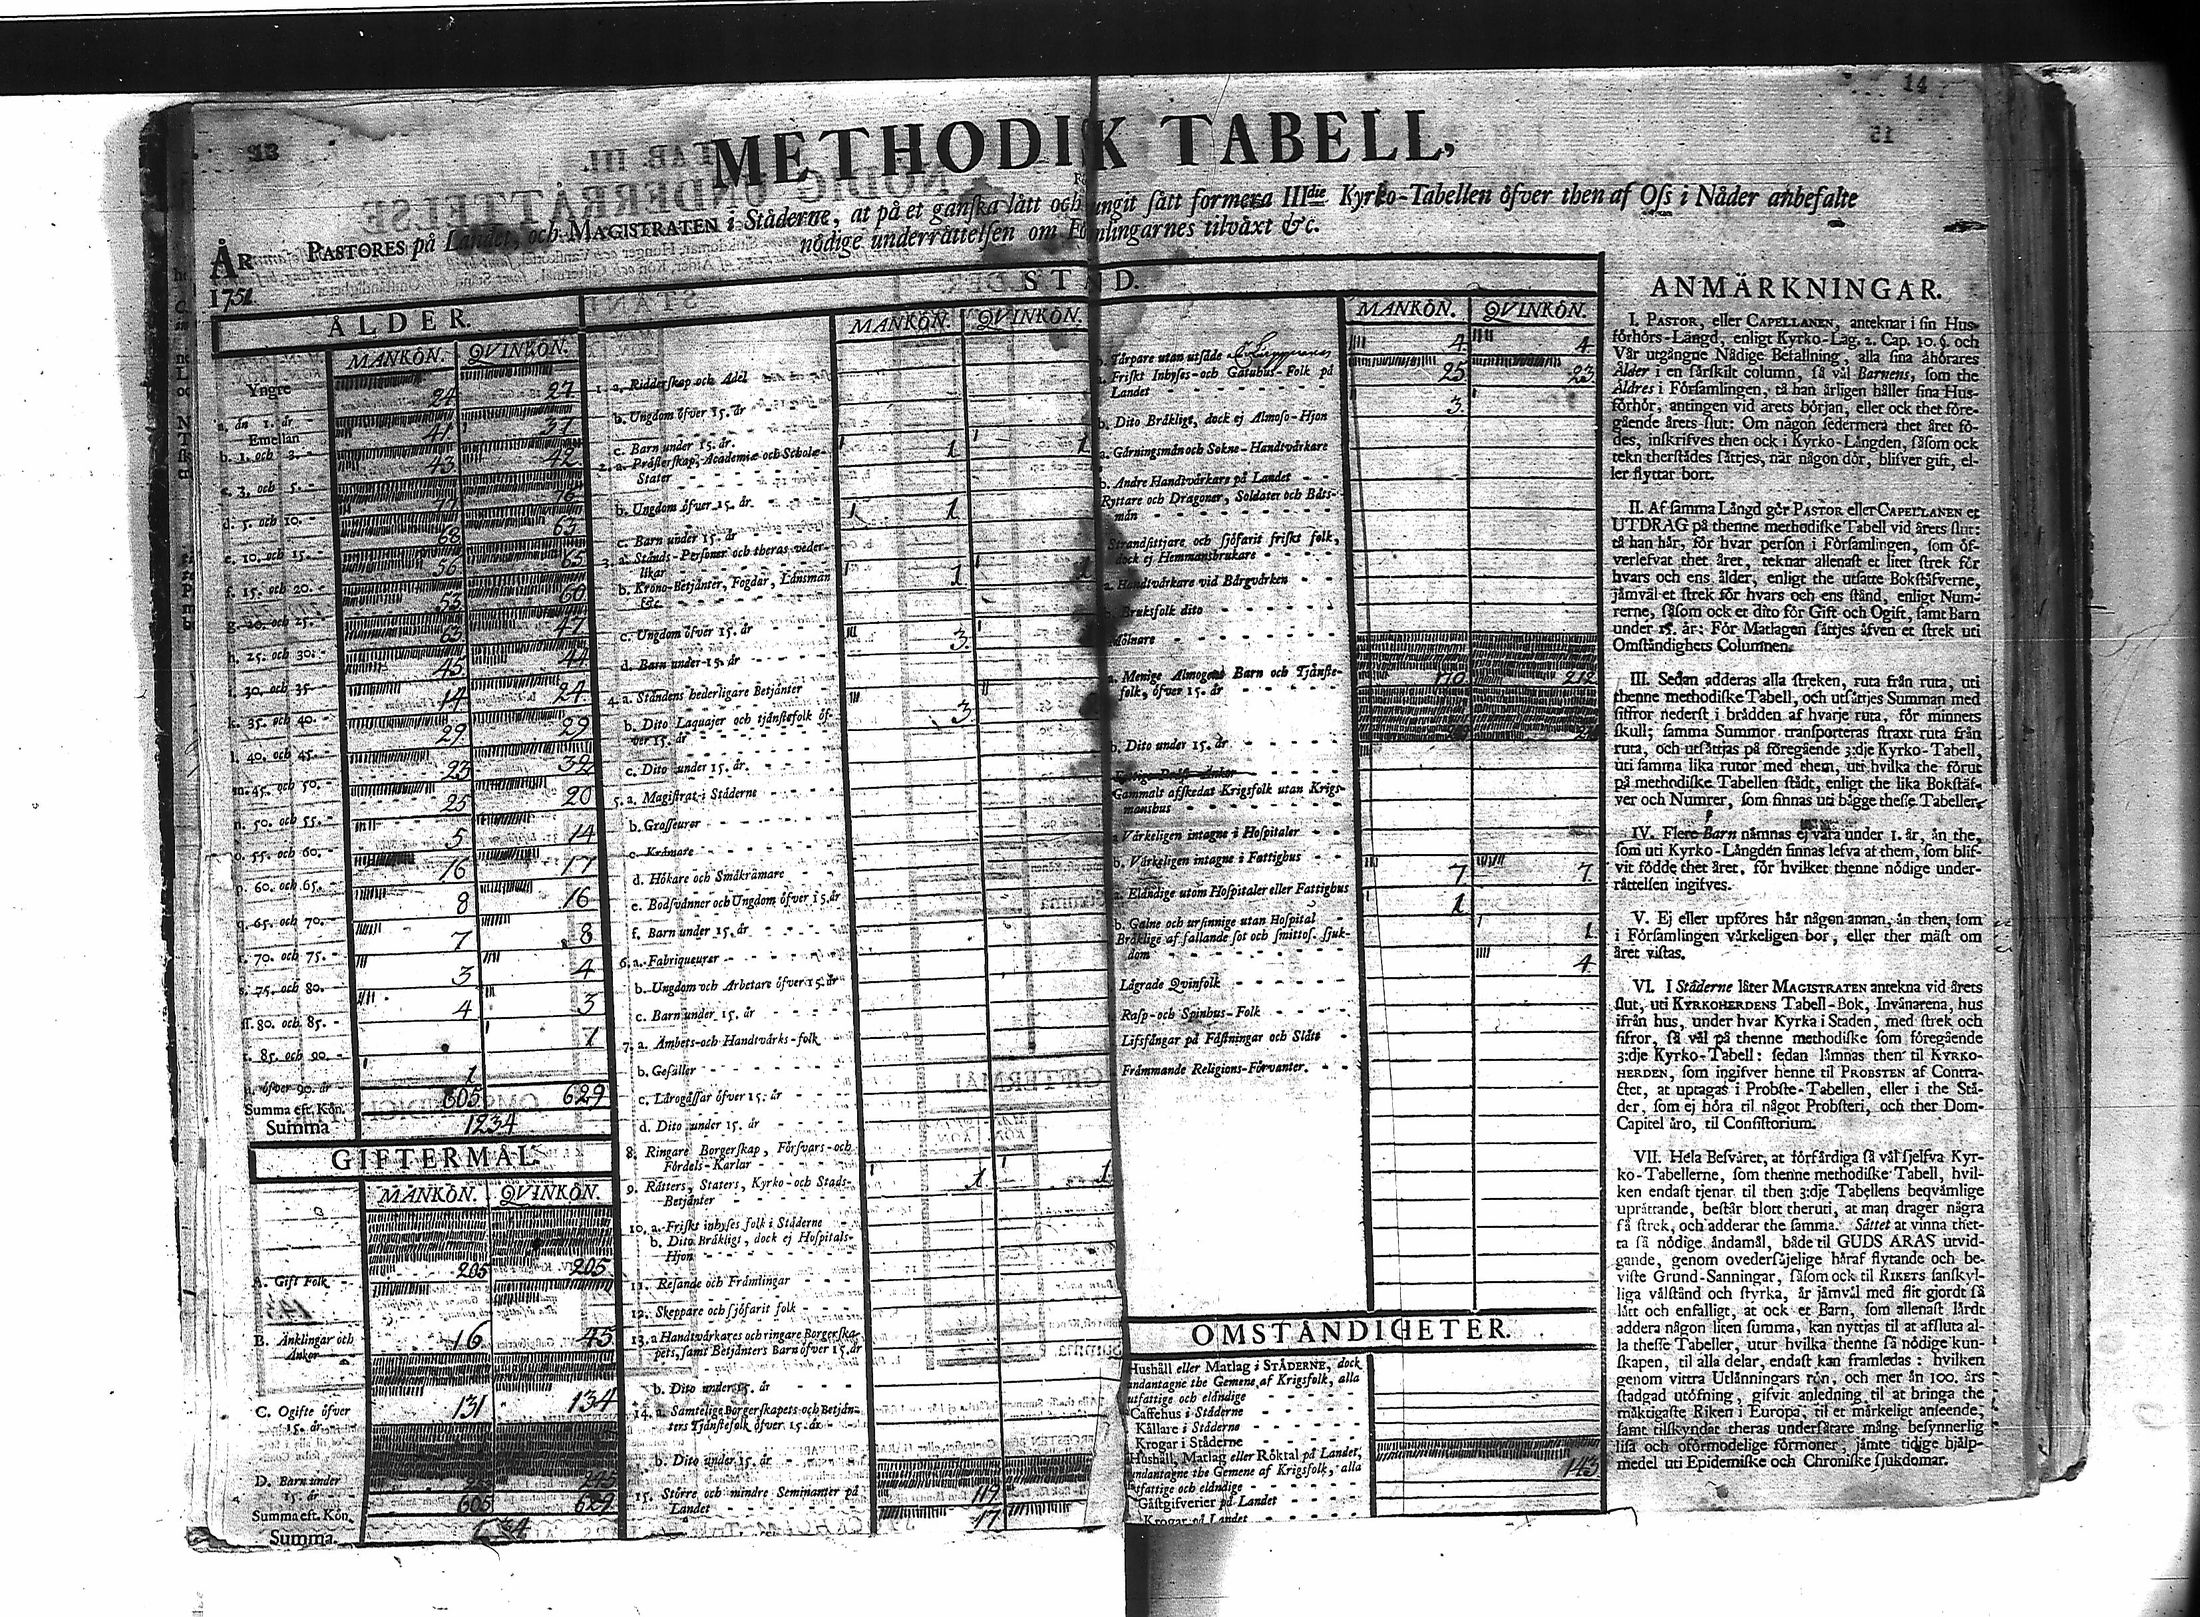 14
15
METHODIK TABELL,
PASTORES på Landet, och MAGISTRATEN i Städerne, at på et ganska lätt och
ungit sätt formera III die Kyrko-Tabellen öfver then af Oss i Nåder anbefalte
nödige underrättelsen om Fö mlingarnes tilväxt &c.
ÅR
1751
STÅND.
ÅLDER.
MANKÖN. QVINKÖN.
Yngre 24 27
a. än 1. år
Emellan 41 37
b. 1. och 3. 43 42
c. 3. och 5. 77 76
d. 5. och 10. 68 63
e. 10. och 15. 56 65
f. 15. och 20. 53 60
g. 20. och 25. 63 47
h. 25. och 30. 45 44
i. 30. och 35 14 24
k. 35. och 40. 29 29
l. 40. och 45. 23 32
m. 45. och 50. 25 20
n. 50. och 55. 5 14
o. 55. och 60. 16 17
p. 60. och 65. 8 16
q. 65. och 70. 7 8
r. 70. och 75. 3 4
s. 75. och 80. 4 3
ss. 80. och 85. 1
t. 85. och 90. 1
u. öfver 90. år
Summa eft. Kön. 605 629
Summa 1234
GIFTERMÅL.
MANKÖN. QVINKÖN.
A. Gift Folk 205 205
B. Änklingar och 16 45
Änkor
C. Ogifte öfver 131 134
15. år
D. Barn under 245
15. år
Summa eft. Kön. 605 629
Summa.
MANKÖN. QVINKÖN.
1. a. Ridderskap och Adel
b. Ungdom öfver 15. år
c. Barn under 15. år.
2. a. Prästerskap, Academiæ och Scholæ- 1 1
Stater
b. Ungdom öfver 15. år 1
c. Barn under 15. år
3. a. Stånds-Personer och theras veder-
likar 1 1
b. Krono-Betjänter, Fogdar, Länsmän
&c.
c. Ungdom öfver 15. år 3
d. Barn under 15. år
4. a. Ståndens hederligare Betjänter
b. Dito Laquajer och tjänstefolk öf- 3
ver 15. år
c. Dito under 15. år.
5. a. Magistrat i Städerne
b. Grosseurer
c. Krämare
d. Hökare och Småkrämare
e. Bodsvänner och Ungdom öfver 15. år
f. Barn under 15. år
6. a. Fabriqueurer
b. Ungdom och Arbetare öfver 15. år
c. Barn under 15. år
7. a. Ämbets- och Handtvärks-folk
b. Gesäller
c. Lärogåssar öfver 15. år
d. Dito under 15. år
8. Ringare Borgerskap, Försvars- och
Fördels-Karlar
9. Rätters, Staters, Kyrko- och Stads- 1 1
Betjänter
10. a. Friskt inhyses folk i Städerne
b. Dito Bräkligt, dock ej Hospitals-
Hjon
11. Resande och Främlingar
12. Skeppare och sjöfarit folk
13. a Handtvärkares och ringare Borgerska-
pets, samt Betjänters Barn öfver 15. år
b. Dito under 15. år
14. a. Samtelige Borgerskapets och Betjän-
ters Tjänstefolk öfver 15. år
b. Dito under 15. år
15. Större och mindre Seminanter på 119
Landet 17
MANKÖN. QVINKÖN.
Torpare utan utsäde 4 4
Friskt Inhyses- och Gatuhus-Folk på 25 23
Landet
b. Dito Bräkligt, dock ej Almoso-Hjon 3
a. Gärningsmän och Sokne-Handtvärkare
b. Andre Handtvärkare på Landet
Ryttare och Dragoner, Soldater och Båts-
män
Strandsittjare och sjöfarit friskt folk,
dock ej Hemmansbrukare
a. Handtvärkare vid Bärgvärken
b. Bruksfolk dito
Mölnare
a. Menige Almogens Barn och Tjänste-
folk, öfver 15. år 170 212
b. Dito under 15. år
Gammalt afskedat Krigsfolk utan Krigs-
manshus
a Värkeligen intagne i Hospitaler
b. Värkeligen intagne i Fattighus
a. Eländige utom Hospitaler eller Fattighus 7 7
b. Galne och ursinnige utan Hospital 1
Bräklige af fallande sot och smittos. sjuk- 1
dom
Lägrade Qvinfolk 4
Rasp- och Spinhus-Folk
Lifsfångar på Fästningar och Slått
Främmande Religions-Förvanter.
OMSTÄNDIGHETER.
Hushåll eller Matlag i STÄDERNE, dock
undantagne the Gemene af Krigsfolk, alla
utfattige och eländige
Caffehus i Städerne
Källare i Städerne
Krogar i Städerne
Hushåll, Matlag eller Röktal på Landet,
undantagne the Gemene af Krigsfolk, alla 143
utfattige och eländige
Gästgifverier på Landet
Krogar på Landet
ANMÄRKNINGAR.
I. PASTOR, eller CAPELLANEN, anteknar i sin Hus-
förhörs-Längd, enligt Kyrko-Lag. 2. Cap. 10. §. och
Vår utgångne Nådige Befallning, alla sina åhörares
Ålder i en särskilt column, så väl Barnens, som the
Äldres i Församlingen, tå han årligen håller sina Hus-
förhör, antingen vid årets början, eller ock thet före-
gående årets slut: Om någon sedermera thet året fö-
des, inskrifves then ock i Kyrko-Längden, såsom ock
tekn therstädes sättjes, när någon dör, blifver gift, el-
ler flyttar bort.
II. Af samma Längd gör PASTOR eller CAPELLANEN et
UTDRAG på thenne methodiske Tabell vid årets slut:
tå han här, för hvar person i Församlingen, som öf-
verlefvat thet året, teknar allenast et litet strek för
hvars och ens ålder, enligt the utsatte Bokstäfverne,
jämväl et strek för hvars och ens stånd, enligt Num-
rerne, såsom ock et dito för Gift och Ogift, samt Barn
under 15. år: För Matlagen sättjes äfven et strek uti
Omständighets Columnen.
III. Sedan adderas alla streken, ruta från ruta, uti
thenne methodiske Tabell, och utsättjes Summan med
siffror nederst i brädden af hvarje ruta, för minnets
skull; samma Summor transporteras straxt ruta från
ruta, och utsättjas på föregående 3:dje Kyrko-Tabell,
uti samma lika rutor med them, uti hvilka the förut
på methodiske Tabellen stådt, enligt the lika Bokstäf-
ver och Numrer, som finnas uti bägge thesse Tabeller.
IV. Flere Barn nämnas ej vara under 1. år, än the,
som uti Kyrko-Längden finnas lefva af them, som blif-
vit födde thet året, för hvilket thenne nödige under-
rättelsen ingifves.
V. Ej eller upföres här någon annan, än then, som
i Församlingen värkeligen bor, eller ther mäst om
året vistas.
VI. I Städerne låter MAGISTRATEN antekna vid årets
slut, uti KYRKOHERDENS Tabell-Bok, Invånarena, hus
ifrån hus, under hvar Kyrka i Staden, med strek och
sifror, så väl på thenne methodiske som föregående
3:dje Kyrko-Tabell: sedan lämnas then til KYRKO-
HERDEN, som ingifver henne til PROBSTEN af Contra-
ctet, at uptagas i Probste-Tabellen, eller i the Stä-
der, som ej höra til något Probsteri, och ther Dom-
Capitel äro, til Consistorium.
VII. Hela Besväret, at förfärdiga så väl sjelfva Kyr-
ko-Tabellerne, som thenne methodiske Tabell, hvil-
ken endast tjenar til then 3:dje Tabellens beqvämlige
uprättande, består blott theruti, at man drager några
få strek, och adderar the samma. Sättet at vinna thet-
ta så nödige ändamål, både til GUDS ÄRAS utvid-
gande, genom ovedersäjelige häraf flytande och be-
viste Grund-Sanningar, såsom ock til RIKETS sanskyl-
liga välstånd och styrka, är jämväl med flit gjordt så
lätt och enfalligt, at ock et Barn, som allenast lärdt
addera någon liten summa, kan nyttjas til at afsluta al-
la thesse Tabeller, utur hvilka thenne så nödige kun-
skapen, til alla delar, endast kan framledas: hvilken
genom vittra Utlänningars rön, och mer än 100. års
stadgad utöfning, gifvit anledning til at bringa the
mäktigaste Riken i Europa, til et märkeligt anseende,
samt tilskyndat theras undersåtare mång besynnerlig
lisa och oförmodelige förmoner, jämte tidige hjälp-
medel uti Epidemiske och Chroniske sjukdomar.